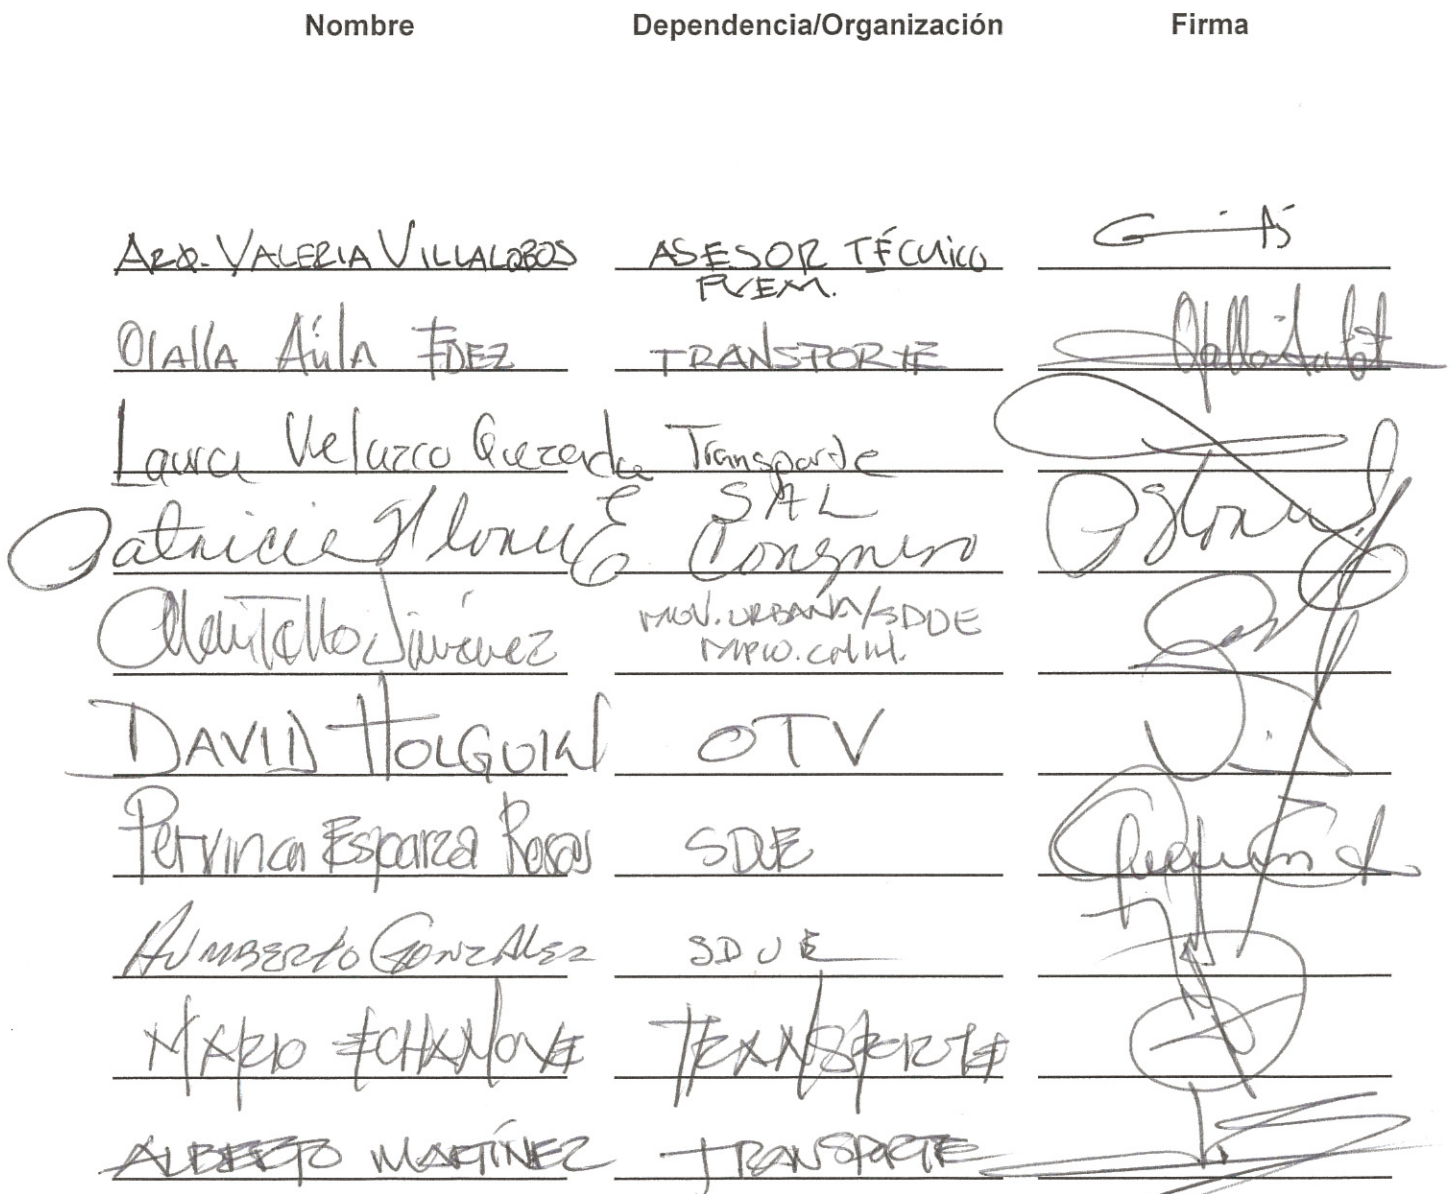 Nombre Dependencia/Organización Firma
ARQ. VALERIA VILLALOBOS ASESOR TÉCNICO
PVEM.
Olalla Ávila FDEZ TRANSPORTE
Laura Velazco Quezada Transporte
SAL
Patricia Congreso
Tello Jiménez MOV. URBANA/SDDE
DAVID HOLGUIN OTV
Pervinca Esparza Rosas SDUE
HUMBERTO GONZALEZ SDUE
MARIO ECHANOVE TRANSPORTE
ALBERTO MARTÍNEZ TRANSPORTE